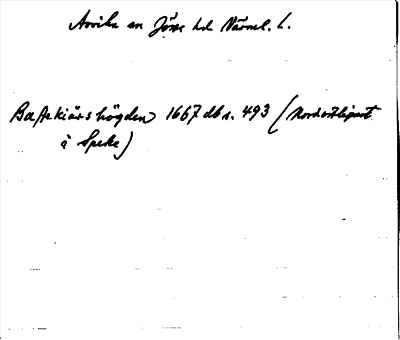 Arvika sn Jösse hd Värml. l.
Bastekiärshögden 1667 db s. 493 (Nordostligast
å Speke)